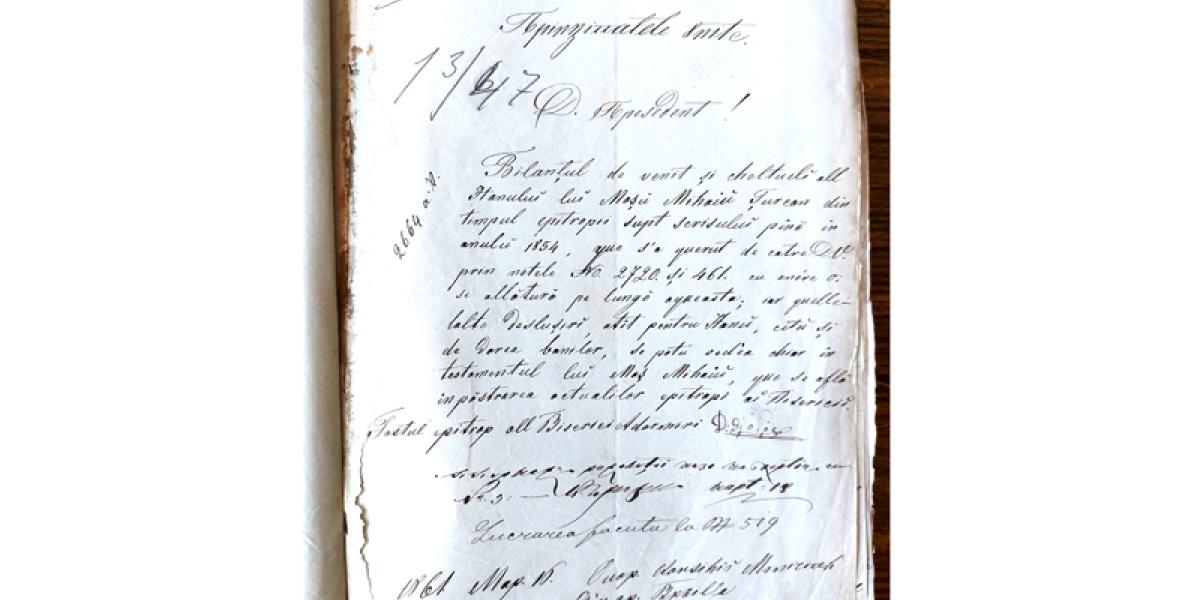 Прinціпателе Unite.
13/647
D. Президент!
2664 a. V.
Bilanțul de venit și cheltuelĭ all
Hanuluĭ luĭ Moșŭ Mihaiŭ Țurcan din
timpul epitropiĭ supt scrisuluĭ pînă in
anulŭ 1854, que s'a querut de catre D.V.
prin notele No. 2720. și 461. cu
se allătură pe lungă aqueasta; iar quelle-
lalte deslușirĭ, atît pentru Hanŭ, cîtŭ și
de darea banilor, se potŭ vedea chiar în
testamentul luĭ Moș Mihaiŭ, que se află
in păstrarea actualilor epitropĭ aĭ Bisericiĭ.
Fostul epitrop all Bisericĭ Adormiri
No. 3:
Lucrarea facuta la No 519
1861 Мар. 15.